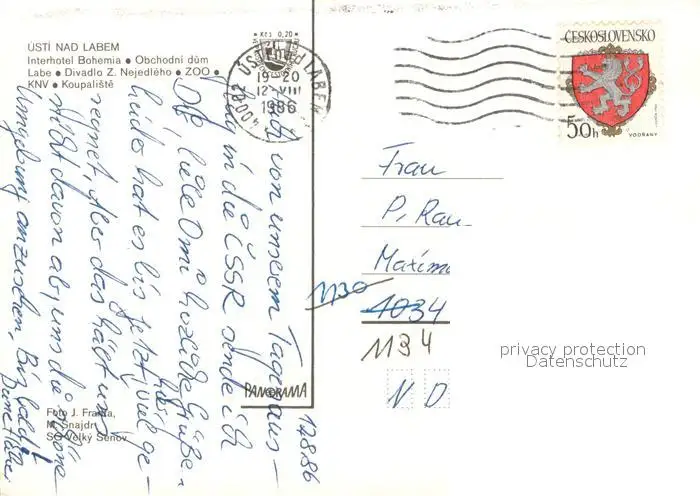 ÚSTÍ NAD LABEM
Interhotel Bohemia • Obchodní dům
Labe • Divadlo Z. Nejedlého • ZOO •
KNV • Koupaliště
Kčs 0,20
ÚSTÍ nad LABEM
19-20
12.VIII
1986
400 01
ČESKOSLOVENSKO
50h
VODŇANY
12.8.86
Auch von unserem Tagesaus-
flug in die ČSSR sende ich
Dir, liebe Omi herzliche Grüße.
Leider hat es bis jetzt viel ge-
regnet, aber das hält uns
nicht davon ab, uns die schöne
Umgebung anzusehen. Bis bald!
Frau
P. Rau
Maxim
1130
1034
1134
N D
PANORAMA
Foto J. Franta,
M. Šnajdr
SG Velký Šenov
privacy protection
Datenschutz